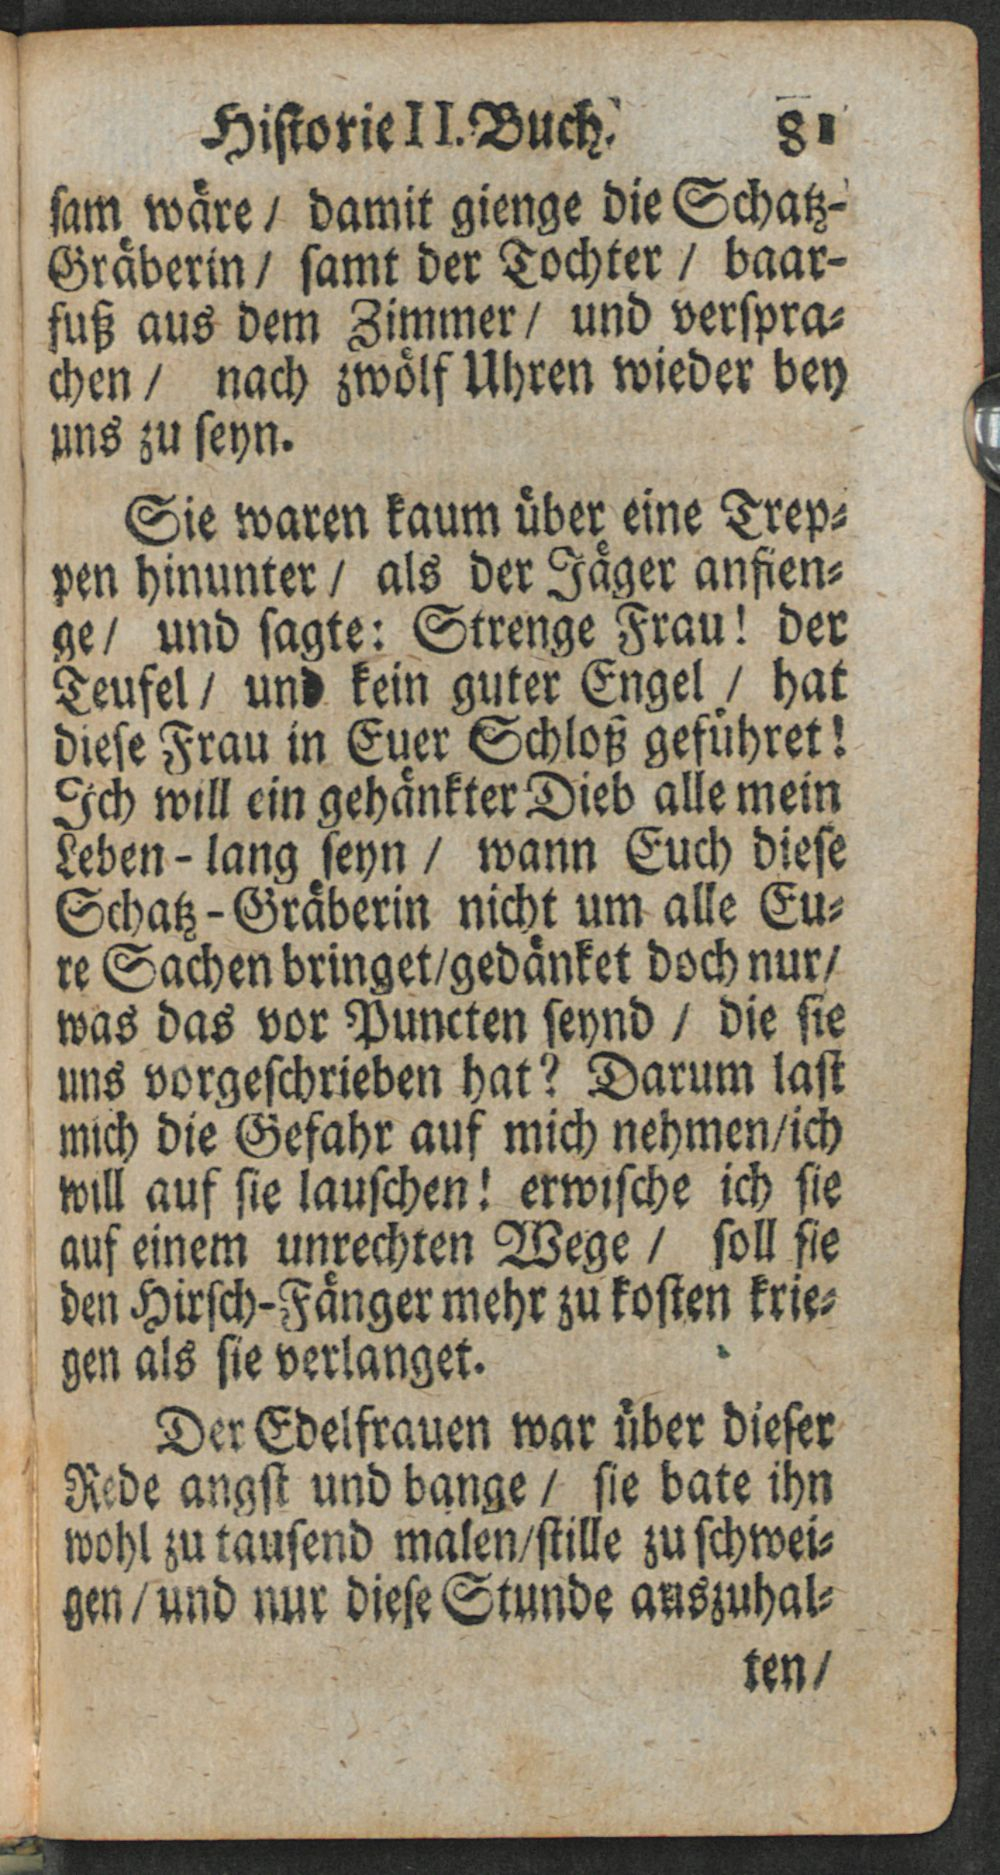 Historie II. Buch. 81
ſam wäre / damit gienge die Schatz-
Gräberin / ſamt der Tochter / baar-
fuß aus dem Zimmer / und verſpra-
chen / nach zwölf Uhren wieder bey
uns zu ſeyn.
Sie waren kaum über eine Trep-
pen hinunter / als der Jäger anfien-
ge / und ſagte: Strenge Frau! der
Teufel / und kein guter Engel / hat
dieſe Frau in Euer Schloß geführet!
Ich will ein gehänkter Dieb alle mein
Leben-lang ſeyn / wann Euch dieſe
Schatz-Gräberin nicht um alle Eu-
re Sachen bringet / gedänket doch nur /
was das vor Puncten ſeynd / die ſie
uns vorgeſchrieben hat? Darum laſt
mich die Gefahr auf mich nehmen / ich
will auf ſie lauſchen! erwiſche ich ſie
auf einem unrechten Wege / ſoll ſie
den Hirſch-Fänger mehr zu koſten krie-
gen als ſie verlanget.
Der Edelfrauen war über dieſer
Rede angſt und bange / ſie bate ihn
wohl zu tauſend malen / ſtille zu ſchwei-
gen / und nur dieſe Stunde auszuhal-
ten /